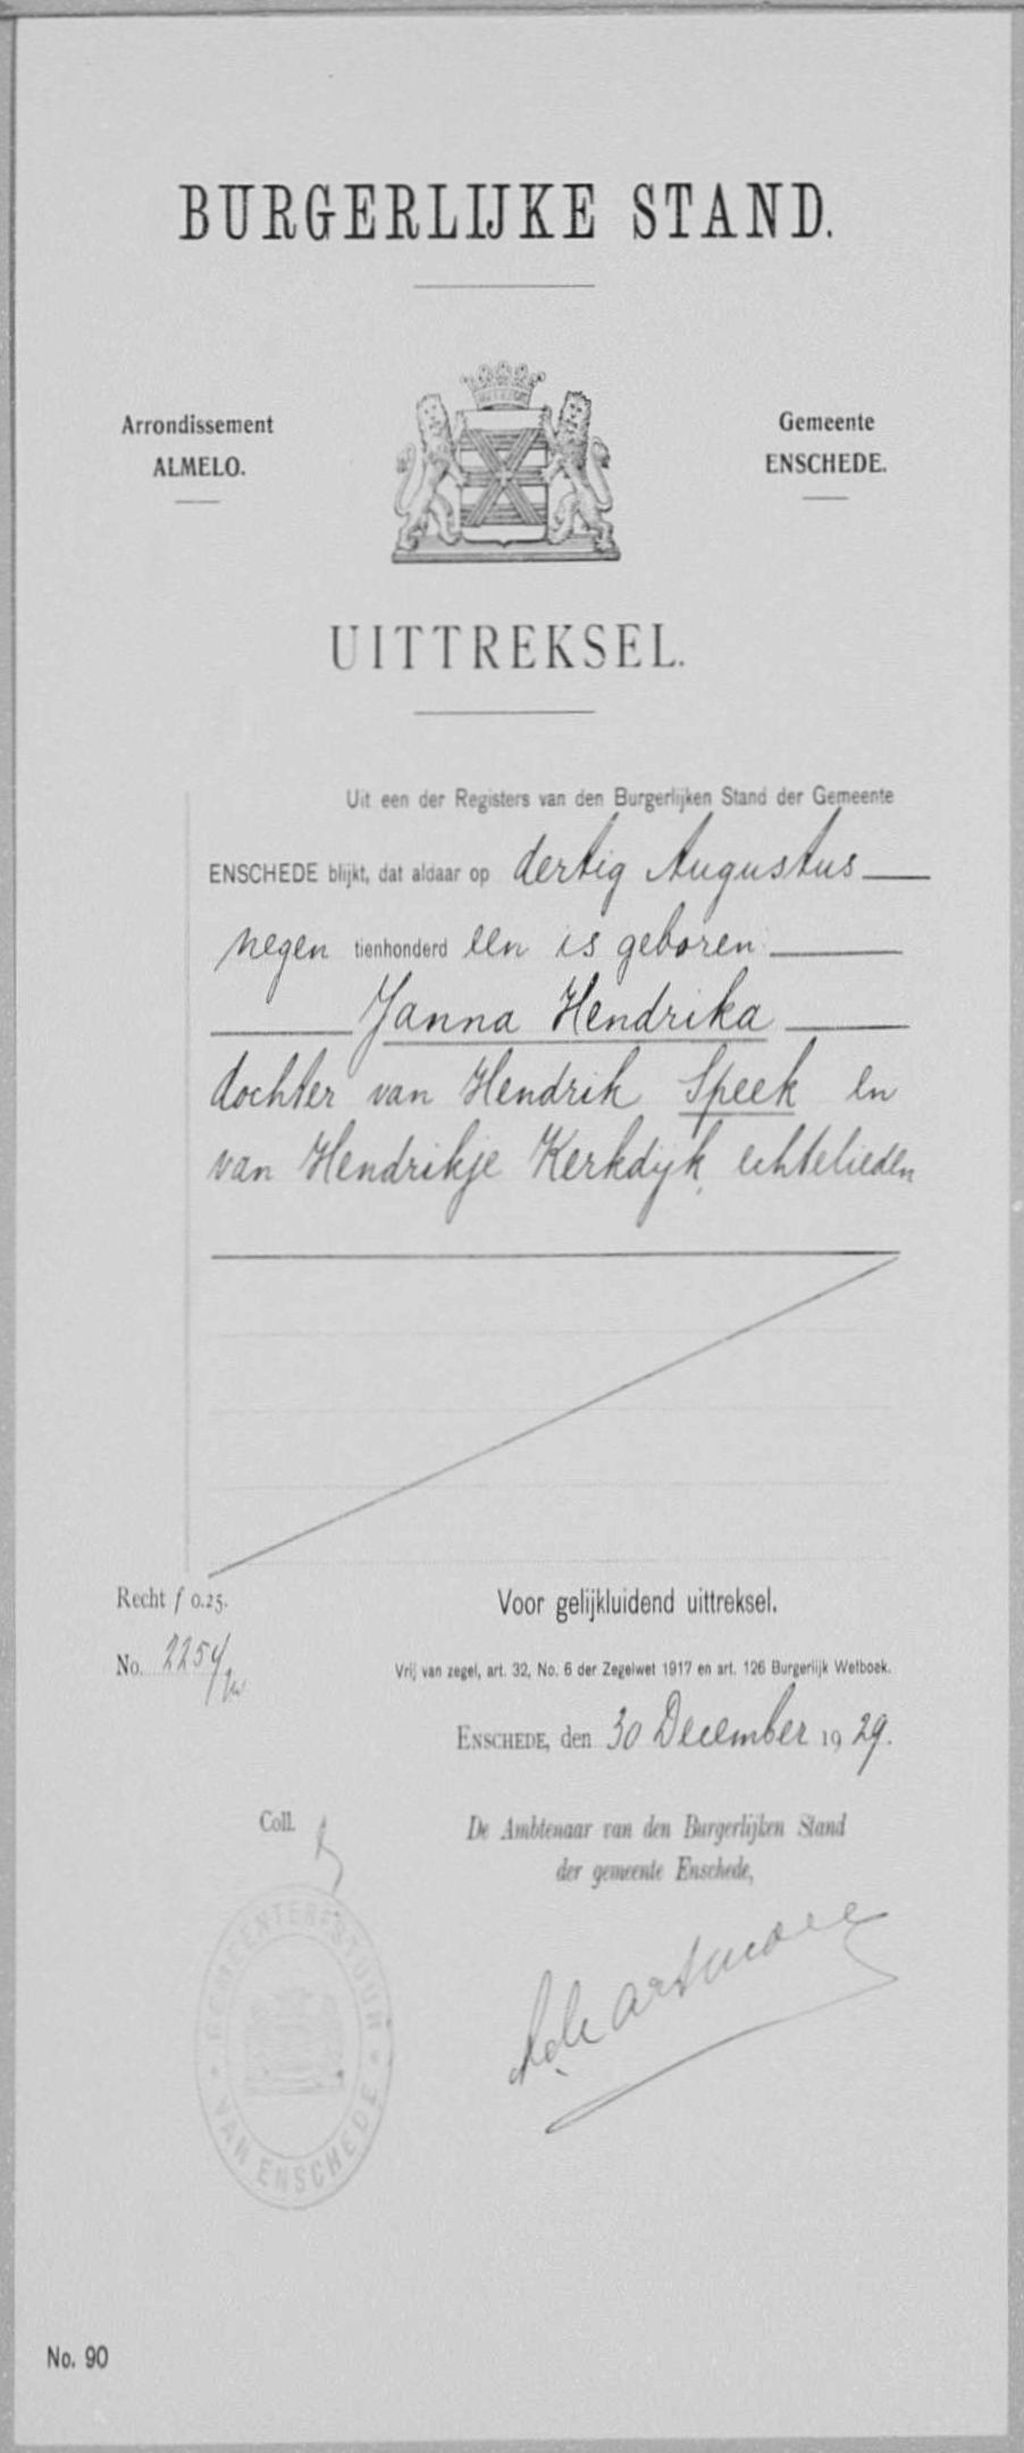 BURGERLIJKE STAND.
Arrondissement
ALMELO.
Gemeente
ENSCHEDE.
UITTREKSEL.
Uit een der Registers van den Burgerlijken Stand der Gemeente
ENSCHEDE blijkt, dat aldaar op dertig Augustus
negen tienhonderd een is geboren
Janna Hendrika
dochter van Hendrik Speek en
van Hendrikje Kerkdijk, echtelieden
Recht f 0.25.
Voor gelijkluidend uittreksel.
No. 2254
Vrij van zegel, art. 32, No. 6 der Zegelwet 1917 en art. 126 Burgerlijk Wetboek.
ENSCHEDE, den 30 December 1929.
Coll.
De Ambtenaar van den Burgerlijken Stand
der gemeente Enschede,
GEMEENTEBESTUUR
VAN ENSCHEDE
No. 90